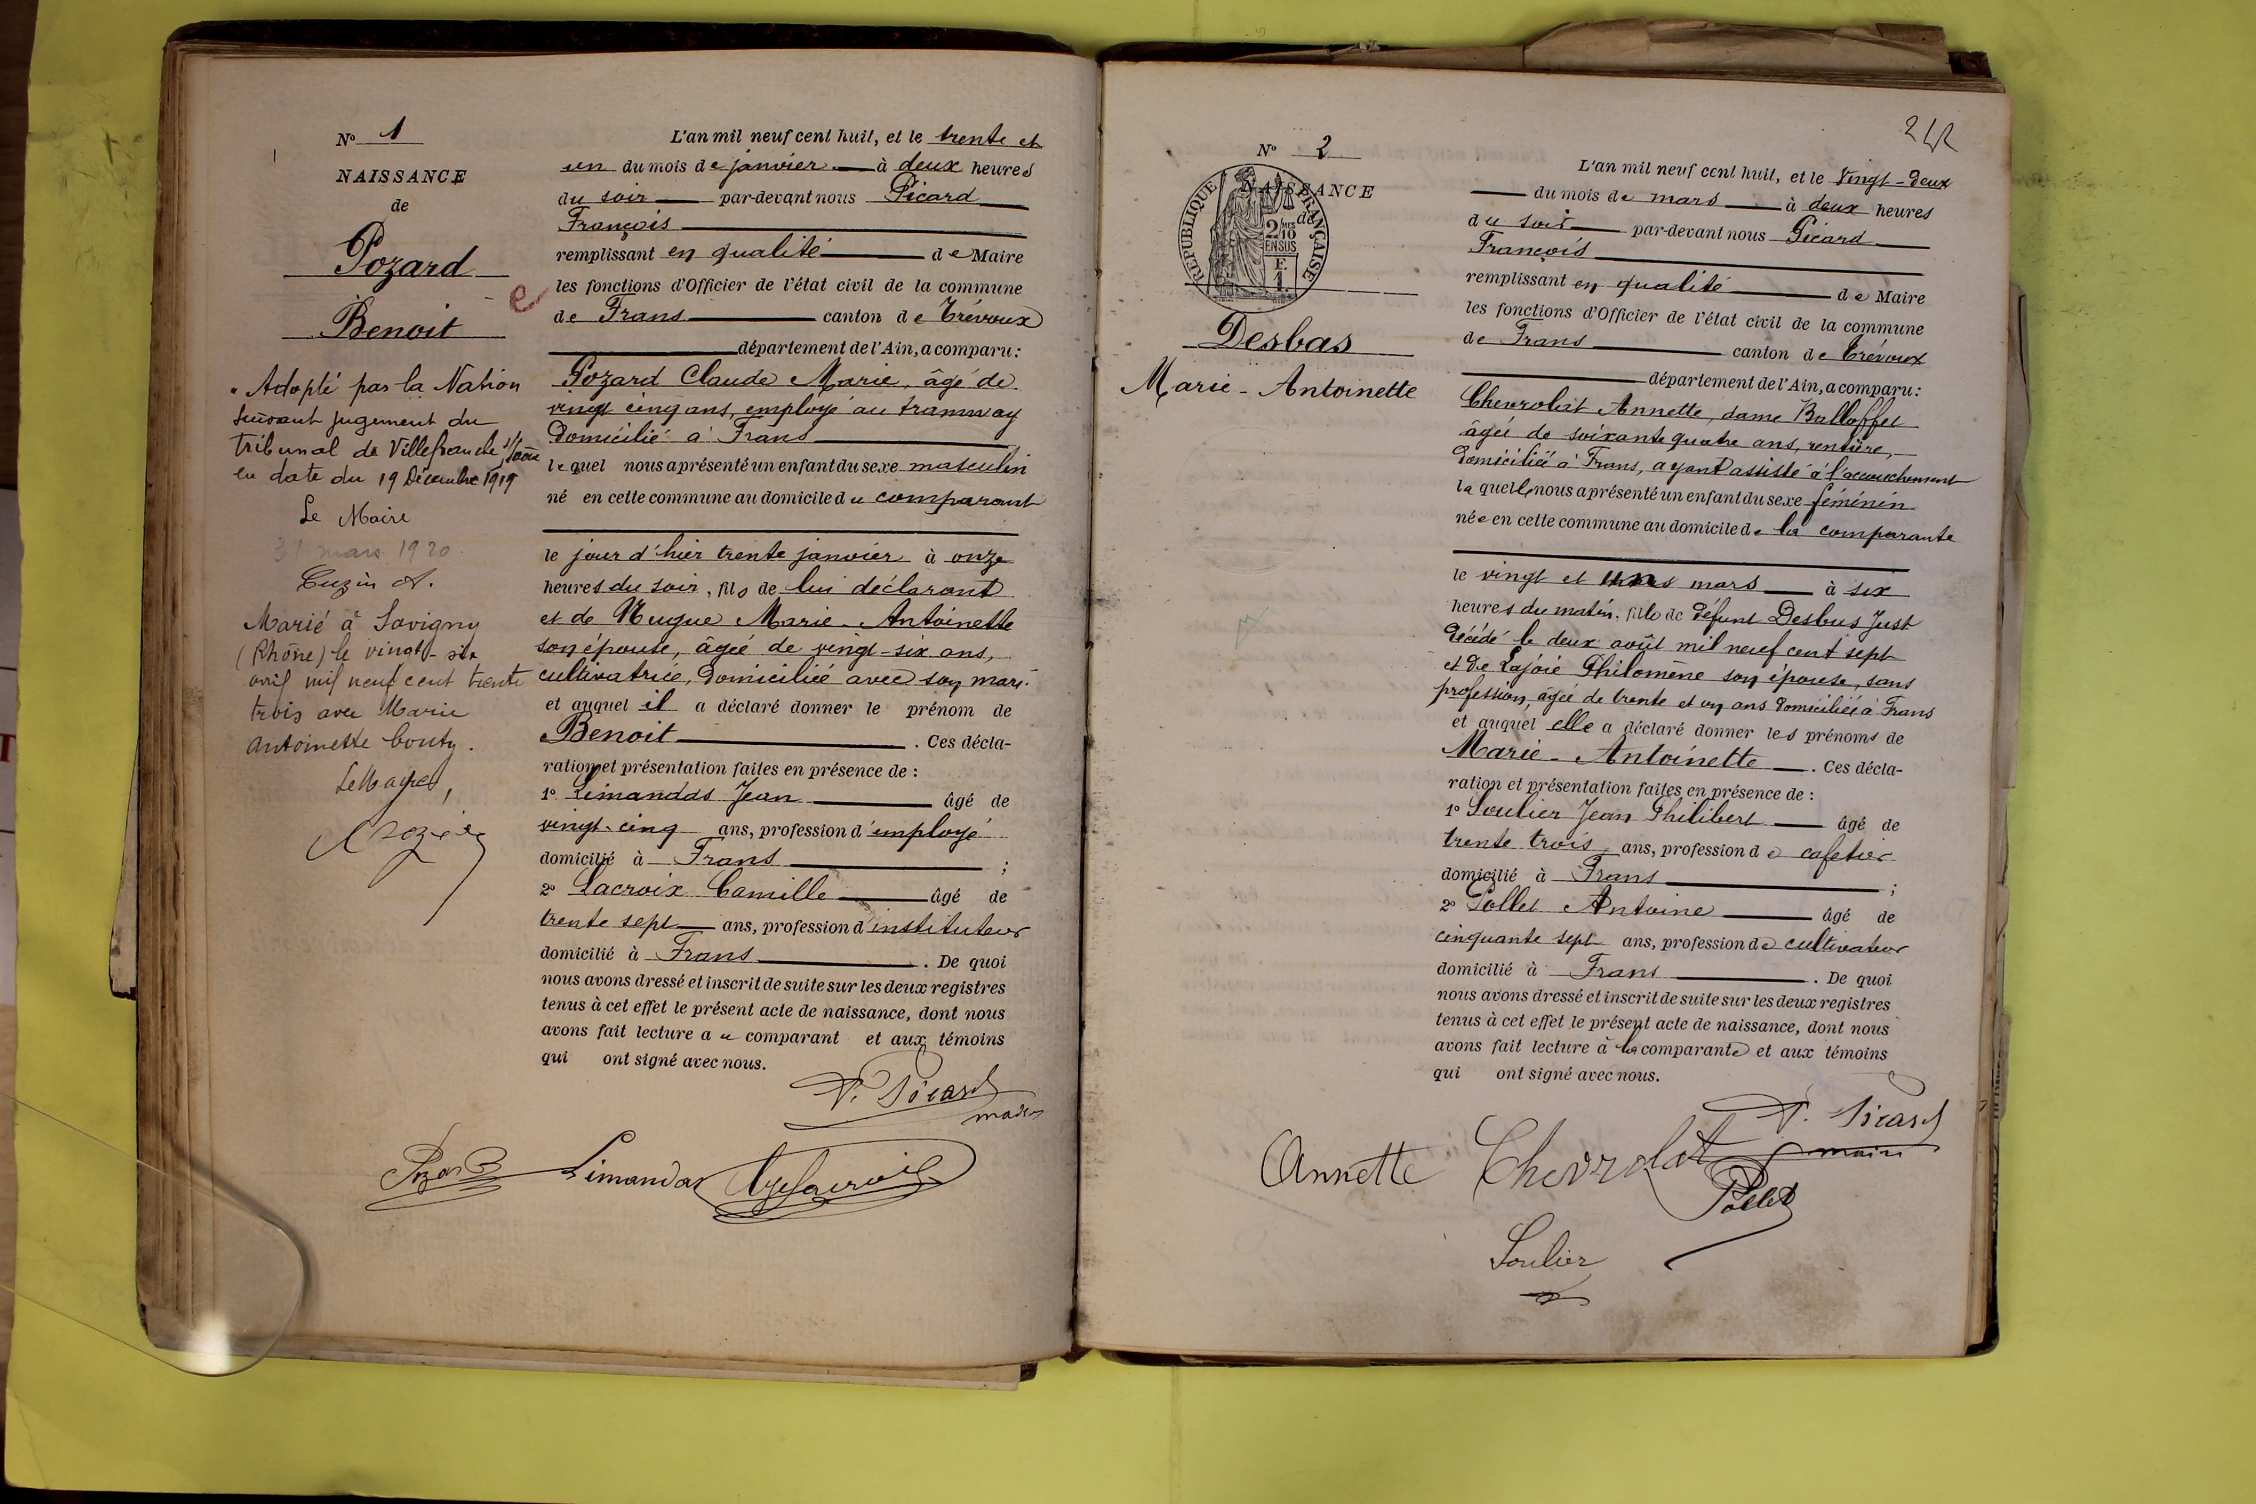 N° 1
NAISSANCE
de
Pozard
Benoit
"Adopté par la Nation
suivant jugement du
tribunal de Villefranche s/Saône
en date du 19 Décembre 1919
Le Maire
31 mars 1920
Cuzin A.
Marié à Savigny
(Rhône) le vingt-six
avril mil neuf cent trente
trois avec Marie
Antoinette Couty.
Le Maire,
L'an mil neuf cent huit, et le trente et
un du mois de janvier à deux heures
du soir par-devant nous Picard
François
remplissant en qualité de Maire
les fonctions d'Officier de l'état civil de la commune
de Frans canton de Trévoux
département de l'Ain, a comparu:
Pozard Claude Marie, âgé de
vingt cinq ans, employé au tramway
domicilié à Frans
lequel nous a présenté un enfant du sexe masculin
né en cette commune au domicile du comparant
le jour d'hier trente janvier à onze
heures du soir, fils de lui déclarant
et de Nugue Marie-Antoinette
son épouse, âgée de vingt-six ans,
cultivatrice, domiciliée avec son mari.
et auquel il a déclaré donner le prénom de
Benoit. Ces décla-
ration et présentation faites en présence de :
1° Limandas Jean âgé de
vingt-cinq ans, profession d'employé
domicilié à Frans ;
2° Lacroix Camille âgé de
trente sept ans, profession d'instituteur
domicilié à Frans. De quoi
nous avons dressé et inscrit de suite sur les deux registres
tenus à cet effet le présent acte de naissance, dont nous
avons fait lecture au comparant et aux témoins
qui ont signé avec nous.
F. Picard
maire
Pozard Limandas Lacroix
N° 2
NAISSANCE
de
REPUBLIQUE FRANÇAISE
2/10MES
EN SUS
E
1.
Desbas
Marie-Antoinette
L'an mil neuf cent huit, et le vingt-deux
du mois de mars à deux heures
du soir par-devant nous Picard
François
remplissant en qualité de Maire
les fonctions d'Officier de l'état civil de la commune
de Frans canton de Trévoux
département de l'Ain, a comparu:
Chevrolat Annette, dame Balloffet
âgée de soixante quatre ans, rentière,
domiciliée à Frans, ayant assisté à l'accouchement
laquelle nous a présenté un enfant du sexe féminin
née en cette commune au domicile de la comparante
le vingt et un mars à six
heures du matin, fille de défunt Desbas Just
décédé le deux août mil neuf cent sept
et de Lajoie Philomène son épouse, sans
profession, âgée de trente et un ans domiciliée à Frans
et auquel elle a déclaré donner les prénoms de
Marie-Antoinette. Ces décla-
ration et présentation faites en présence de :
1° Soulier Jean Philibert âgé de
trente trois ans, profession de cafetier
domicilié à Frans ;
2° Pollet Antoine âgé de
cinquante sept ans, profession de cultivateur
domicilié à Frans. De quoi
nous avons dressé et inscrit de suite sur les deux registres
tenus à cet effet le présent acte de naissance, dont nous
avons fait lecture à la comparante et aux témoins
qui ont signé avec nous.
F. Picard
maire
Annette Chevrolat
Pollet
Soulier